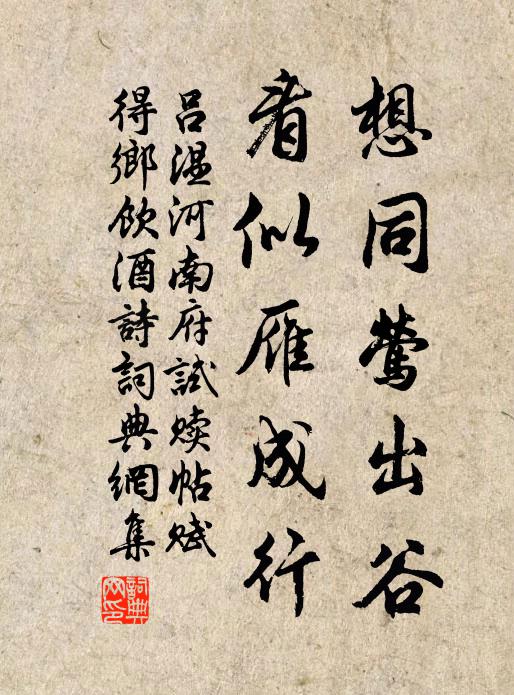 想同鶯出谷
看似雁成行
吕溫河南府試贖帖賦
得鄉飲酒詩詞典網集
詞典